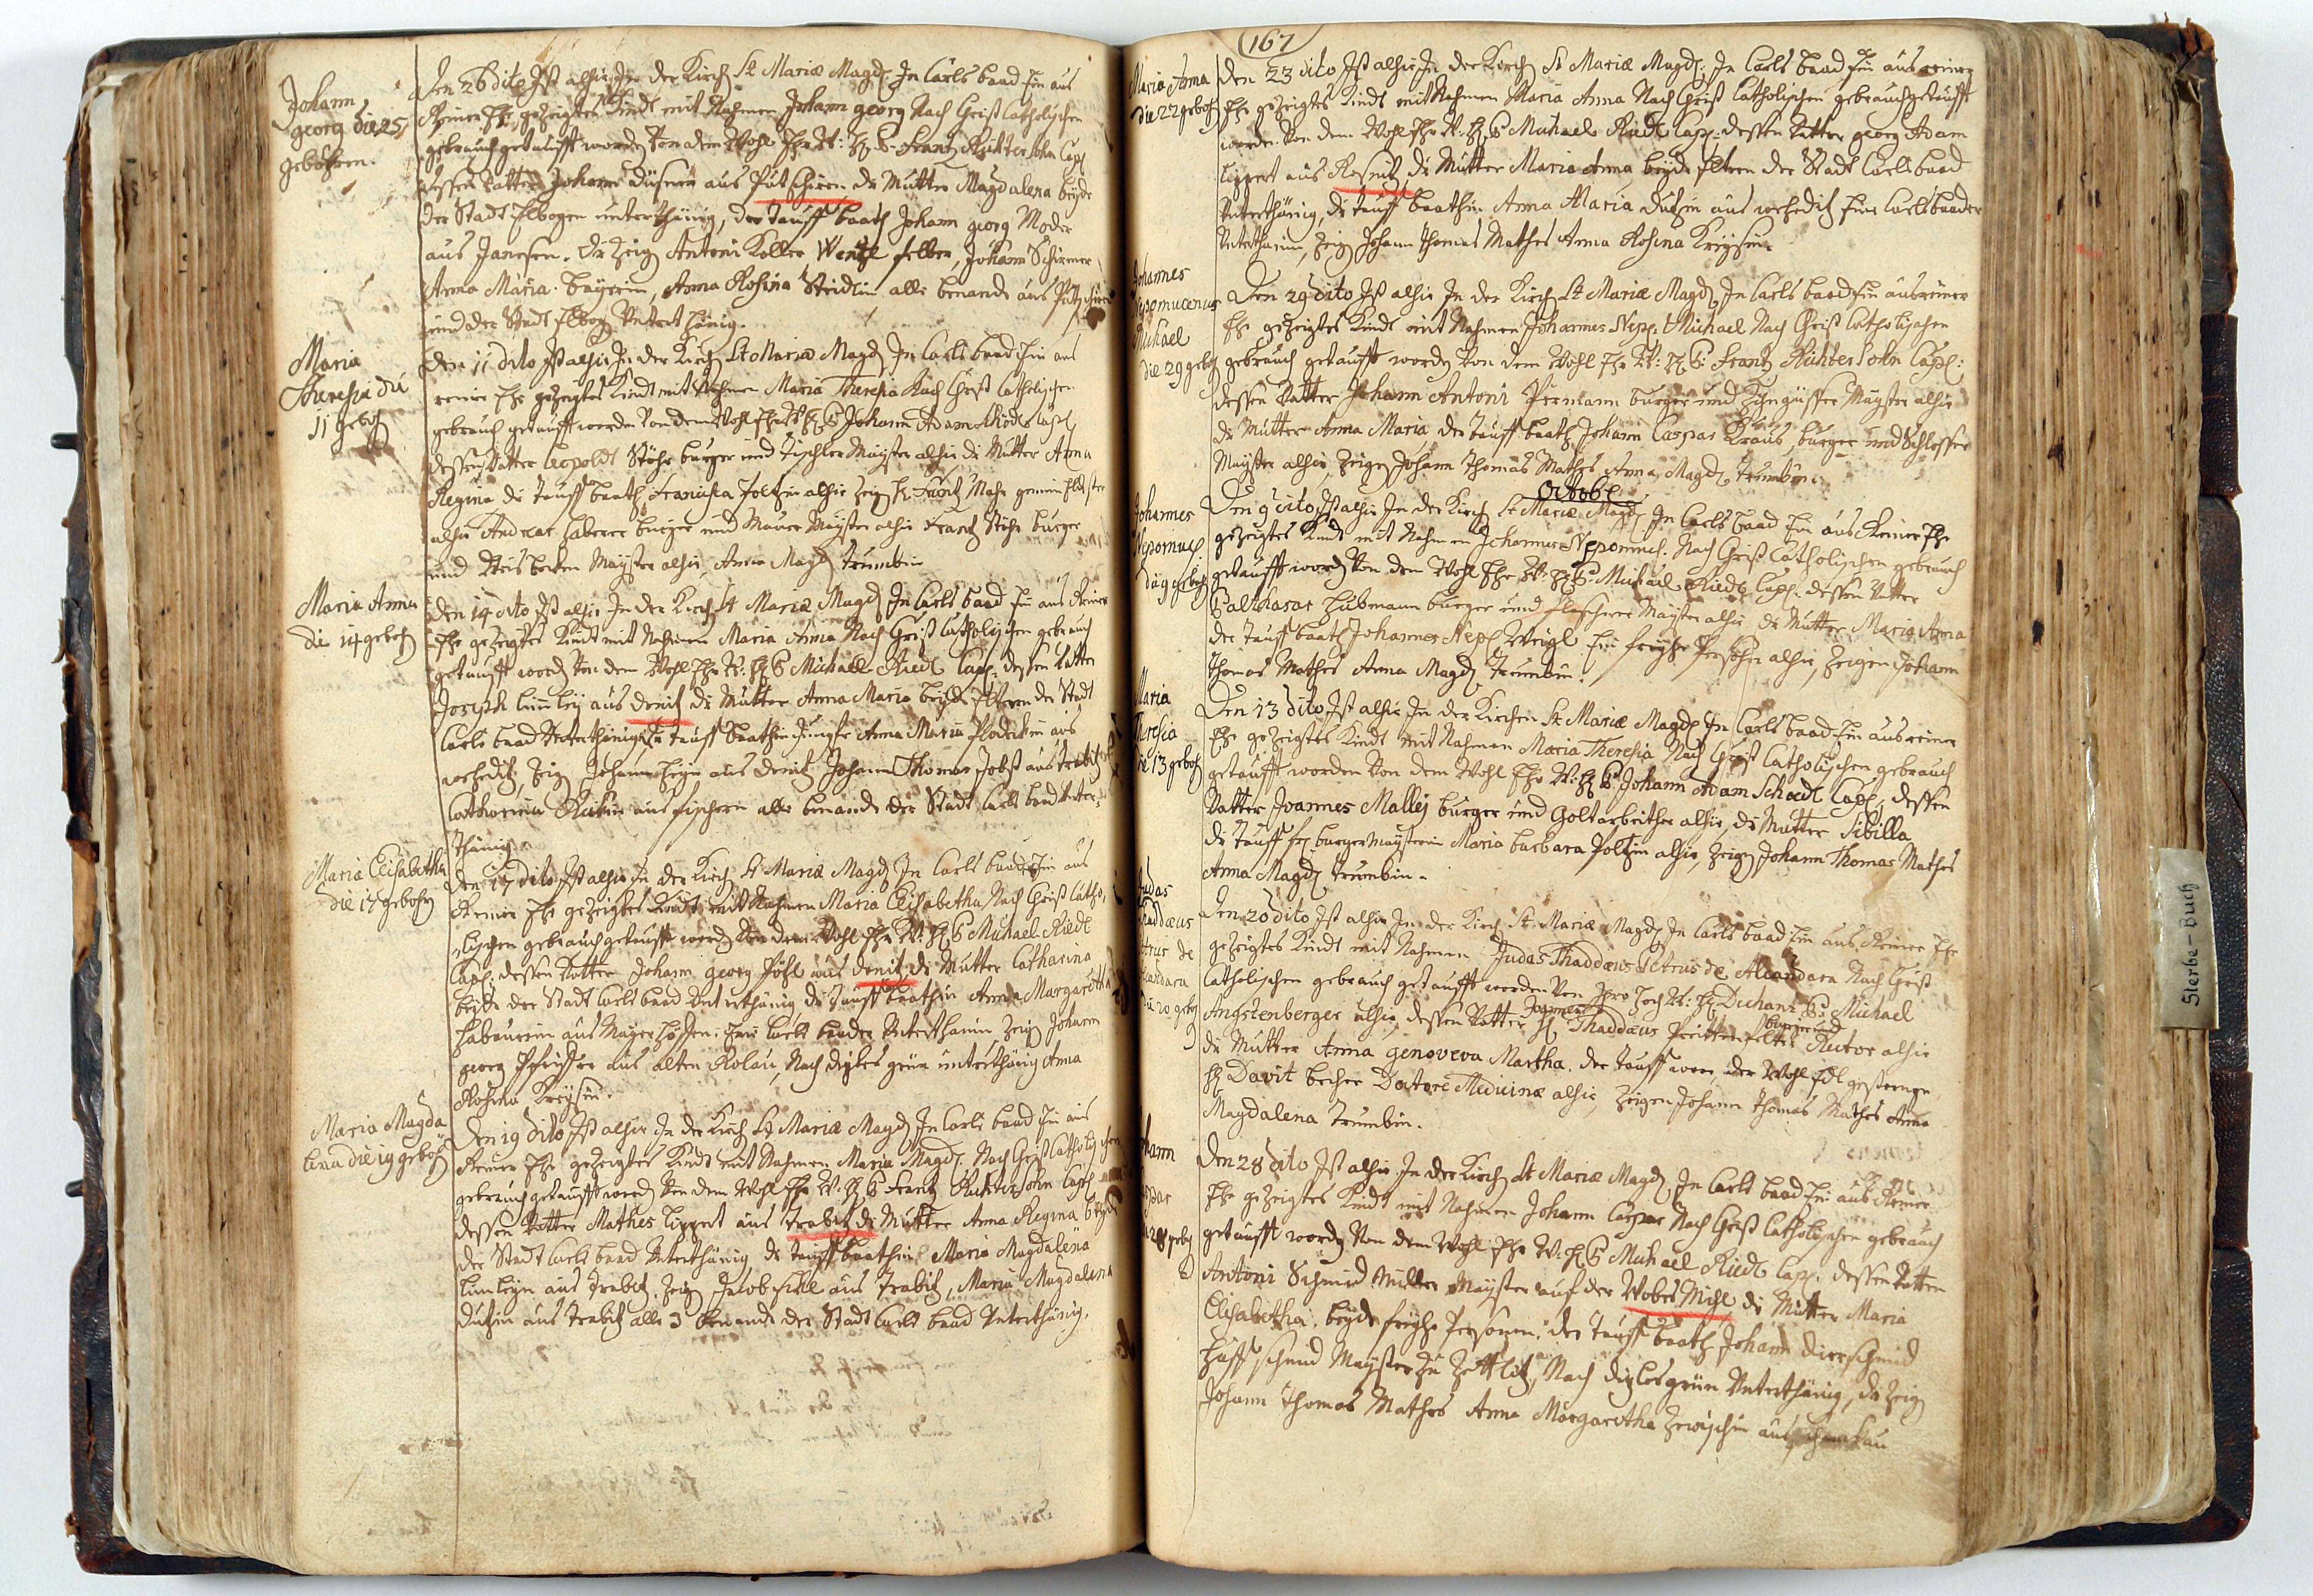 Johann
georg die 25
gebohren.
Den 26 dito Ist alhir In der Kirch St Mariæ Magd: In Carls baad Ein aus
Reiner Ehe gezeigtes Kindt mit Nahmen Johann georg Nach Christ Catholischen
gebrauch getaufft worden Von dem Wohl Ehr W: H: P. Frantz Richter Sohn Cap:
dessen Vatter Johann aus Putschirn die Mutter Magdalena beyde
der Stadt Elbogen unterthänig, der Tauff baath Johann georg Moder
aus Janesen. die Zeig Antoni Koller Wentzl felber, Johann Schirmer
Anna Maria bayerin, Anna Rosina Steidlin alle benande aus Putschirn
und der Stadt Elbog Unterthänig.
Maria
Theresia die
11 geboh
Den 11 dito Ist alhir In der Kirch St Mariæ Magd In Carls baad Ein aus
reiner Ehe gezeigtes Kindt mit Nahmen Maria Theresia Nach Christ Catholischen
gebrauch getaufft worden Von dem Wohl Ehr W: H: P Johann Adam Schödl Cap:
dessen Vatter Leopoldt Stöhr burger und Tischler Mayster alhir die Mutter Anna
Regina die Tauff baath Francisca Poltzin alhir Zeig H: Frantz Mahr gemein Eltster
alhir Andreas Haberer burger und Maurer Mayster alhir Frantz Stöhr burger
und Weis becken Mayster alhir, Anna Magd Trumbin
Maria Anna
die 14 geboh
Den 14 dito Ist alhir In der Kirch St Mariæ Magd In Carls baad Ein aus Reiner
Ehe gezeigtes Kindt mit Nahmen Maria Anna Nach Christ Catholischen gebrauch
getaufft word Von dem Wohl Ehr W: H: P Michael Riedl Cap: dessen Vatter
Joseph aus Donitz die Mutter Anna Maria beyde Eltern der Stadt
Carls baad Unterthänig die Tauff baathin Jungfr Anna Maria aus
wehediz, Zeig Johann aus Donitz Johann Thomas Jobst aus Trabitz
Catharina aus fischern alle benande der Stadt Carls baad Unter,
thänig
Maria Elisabetha
die 17 gebohr
Den 17 dito Ist alhir In der Kirch St Mariæ Magd In Carls baad Ein aus
Reiner Ehe gezeigtes Kindt mit Nahmen Maria Elisabetha Nach Christ Catho,
lischen gebrauch getaufft word Von dem Wohl Ehr W: H: P Michael Riedl
Cap: dessen Vatter Johann georg Pöhl aus Donitz die Mutter Catharina
beyde der Stadt Carls baad Unterthänig die Tauff baathin Anna Margaretha
Habererin aus Mayerhöffen. Eine Carls baader Unterthanin Zeig Johann
georg aus alten Rolau, Nach grün unterthänig Anna
Rosina Kreysin.
Maria Magda
lena die 19 geboh
Den 19 dito Ist alhir In der Kirch St Mariæ Magd In Carls baad Ein aus
Reiner Ehe gezeigtes Kindt mit Nahmen Maria Magd: Nach Christ Catholischen
gebrauch getaufft word Von dem Wohl Ehr W: H: P Frantz Richter Sohn Cap
dessen Vatter Mathes Lippert aus Trabitz die Mutter Anna Regina beyde
der Stadt Carls baad Unterthänig die Tauff baathin Maria Magdalena
aus Trabitz, Zeig Jacob aus Trabitz, Maria Magdalena
Dutzin aus Trabitz alle 3 benande der Stadt Carls baad Unterthänig.
167
Maria Anna
die 22 geboh
Den 23 dito Ist alhir In der Kirch St Mariæ Magd: In Carls baad Ein aus reiner
Ehe gezeigtes Kindt mit Nahmen Maria Anna Nach Christ Catholischen gebrauch getaufft
worde Von dem Wohl Ehr W: H: P Michael Riedl Cap: dessen Vatter georg Adam
Lippert aus Rosnitz die Mutter Maria Anna, beyde Eltern der Stadt Carls baad
Unterthänig, die Tauff baathin Anna Maria Dutzin aus wehediz Eine Carlsbaader
Unterthanin, Zeig Johann Thomas Mathes Anna Rosina Kreysin.
Johannes
Nepomucenus
Michael
die 29 geboh
Den 29 dito Ist alhir In der Kirch St Mariæ Magd In Carls baad Ein aus reiner
Ehe gezeigtes Kindt mit Nahmen Johannes Nepp: Michael Nach Christ Catholischen
gebrauch getaufft worde Von dem Wohl Ehr W: H: P: Frantz Richter Sohn Cap:
dessen Vatter Johann Antoni Permann burger und Zihngüsser Mayster alhir
die Mutter Anna Maria, der Tauff baath Johann Caspar Kraus, burger und Schlosser
Mayster alhir, Zeige Johann Thomas Mathes Anna Magd Trumbin.
Octobr
Johannes
Nepomuc.
die 9 geboh
Den 9 dito Ist alhir In der Kirch St Mariæ Magd In Carls baad Ein aus Reiner Ehe
gezeigtes Kindt mit Nahmen Johannes Nepomuc. Nach Christ Catholischen gebrauch
getaufft word Von dem Wohl Ehr W: H: P: Michael Riedl Cap: dessen Vatter
Balthasar Hubmann burger und flaschner Mayster alhir die Mutter Maria Anna
der Tauff baath Johannes Nep: Weigl Ein freyhe Persohn alhir, Zeigen Johann
Thomas Mathes Anna Magd Trumbin.
Maria
Theresia
die 13 geboh
Den 13 dito Ist alhir In der Kirchen St Mariæ Magd In Carls baad Ein aus reiner
Ehe gezeigtes Kindt mit Nahmen Maria Theresia Nach Christ Catholischen gebrauch
getaufft worden Von dem Wohl Ehr W: H: P: Johann Adam Schödl Cap, dessen
Vatter Joannes Mallej burger und Goltarbeither alhir, die Mutter Sibilla
die Tauff fr burgermaysterin Maria barbara Poltzin alhir, Zeig Johann Thomas Mathes
Anna Magd Trumbin.
Judas
Thaddæus
Petrus de
Alcandara
die 20 geboh
Den 20 dito Ist alhir In der Kirch St Mariæ Magd In Carls baad Ein aus Reiner Ehe
gezeigtes Kindt mit Nahmen Judas Thaddæus Petrus de Alcandara Nach Christ
Catholischen gebrauch getaufft worden Von Ihro Hoch W: H: Dechant P: Michael
Angstenberger alhir, dessen Vatter H: Joannes Thaddæus burger und Rector alhir
die Mutter Anna genoveva Martha. der Tauff ware der Wohl Edl gestrenge
H: Davit becher Doctore Medicinæ alhir, Zeigen Johann Thomas Mathes Anna
Magdalena Trumbin.
Johann
Caspar
die 28 geboh
Den 28 dito Ist alhir In der Kirch St Mariæ Magd In Carls baad Ein aus Reiner
Ehe gezeigtes Kindt mit Nahmen Johann Caspar Nach Christ Catholischen gebrauch
getaufft word Von dem Wohl Ehr W: H: P Michael Riedl Cap: dessen Vatter
Antoni Schmid Müller Mayster auf der Wobes Mihl die Mutter Maria
Elisabetha, beyde freyhe Personen. der Tauff baath Johann Dirrschmid
Huffschmid Mayster zu Zettlitz, Nach grün Unterthänig, die Zeig
Johann Thomas Mathes Anna Margaretha aus
Sterbe-Buch